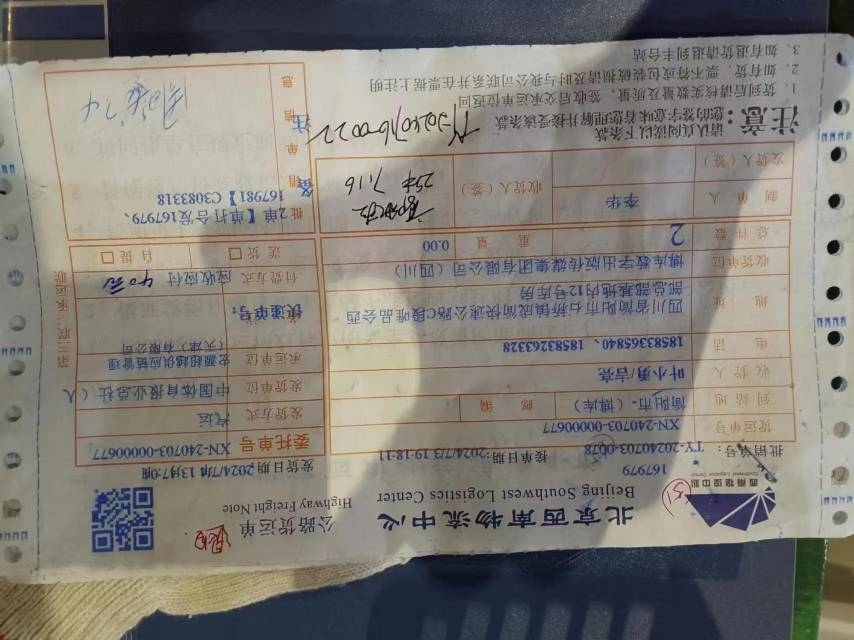 西南物流中心
Southwest Logistics Center
北京西南物流中心
Beijing Southwest Logistics Center
公路货运单
Highway Freight Note
167979
批销单号: TY-20240703-0078
接单日期: 2024/7/3 19:18:11
发货日期
货运单号 XN-240703-00000677
委托单号 XN-240703-00000677
到站地 简阳市-(博库)
邮编
发货方式 汽运
收货人 叶小勇/吉亮
发货单位 中国体育报业总社(
电话 18583365840、18583263328
承运单位 宏源超越供应链管理(天津)有限公司
地址 四川省简阳市石桥镇成简快速公路C段唯品会西部总部基地内12号库房
快递单号:
收货单位 博库数字出版传媒集团有限公司(四川)
付款方式 应收应付
总件数 2
重量 0.00
送货 自提
制单人 李华
收货人(签)
25本 7.16
发货人(签)
批销单信息
备注
2单【单打合发167979、167981】C30833118
注意:
请认真阅读以下条款
您的签字意味着您理解并接受该条款
1、货到后请核实数量及质量,签收后交承运单位返回
2、如有货、票不符或包装破损请及时与我公司联系并在票据上注明
3、如有退货请退到丰台站
第三联:承运联